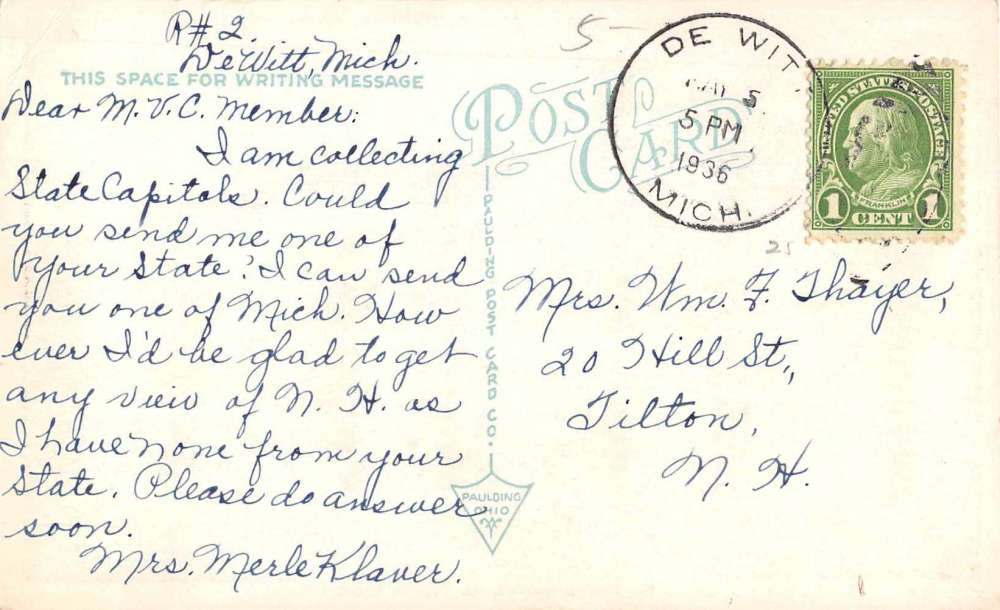 R#2.
DeWitt, Mich.
THIS SPACE FOR WRITING MESSAGE
Dear M.V.C. Member:
I am collecting
State Capitols. Could
you send me one of
your state? I can send
you one of Mich. How
ever I'd be glad to get
any view of N. H. as
I have none from your
state. Please do answer
soon.
Mrs. Merle Klaver.
POST
CARD
PAULDING POST CARD CO.
PAULDING
OHIO
5-
DE WIT
5
5 PM
1936
MICH.
UNITED STATES POSTAGE
FRANKLIN
1 CENT 1
25
Mrs. Wm. F. Thayer,
20 Hill St.,
Tilton,
N. H.